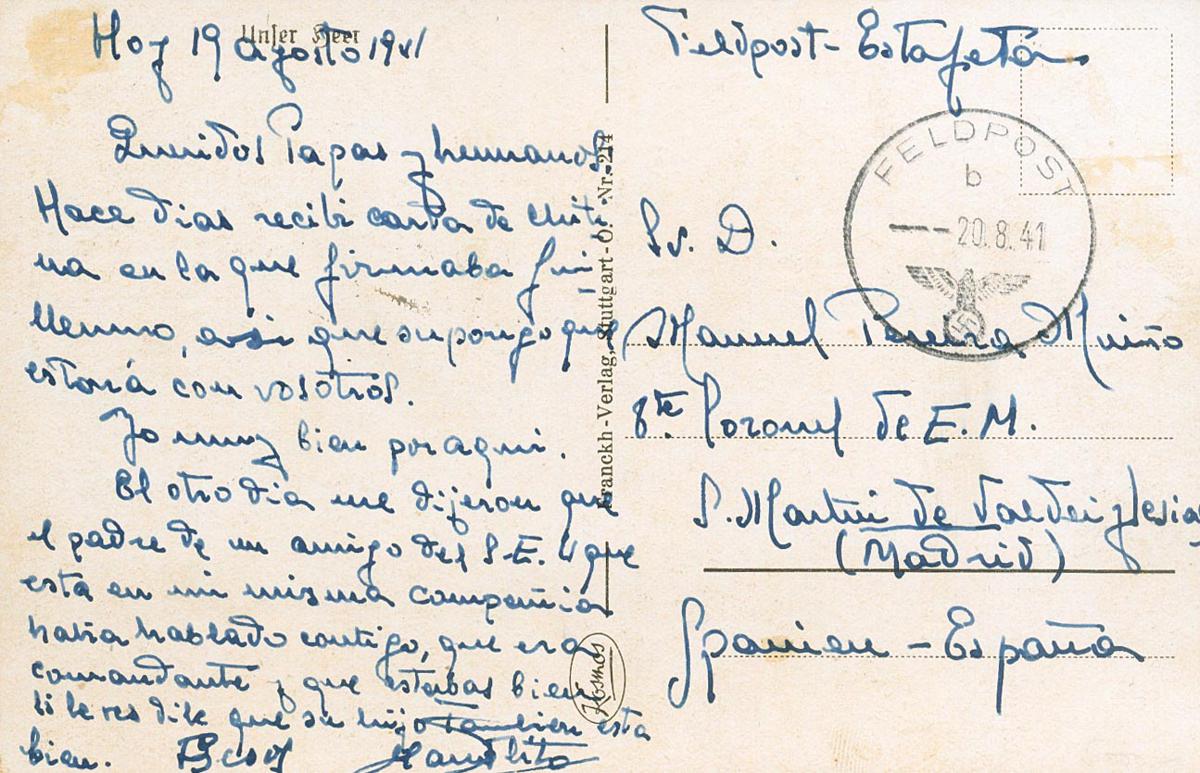 Unser Heer
Hoy 19 agosto 1941
Queridos Papas y hermanos.
Hace dias recibi carta de Chiti-
na en la que firmaba Gui-
llermo, asi que supongo que
estará con vosotros.
Yo muy bien por aqui.
El otro dia me dijeron que
el padre de un amigo del S.E.U que
esta en mi misma compañia
habia hablado contigo, que era
comandante y que estabas bien
si le ves dile que su hijo tambien esta
bien. Besos Manolito
Franckh-Verlag, Stuttgart-O. Nr. 214
Kosmos
Feldpost - Estafeta.
FELDPOST
b
20.8.41
Sr. D.
Manuel Pereira Muiño
Tte Coronel de E.M.
S. Martin de Valdeiglesias
(Madrid)
Spanien - España